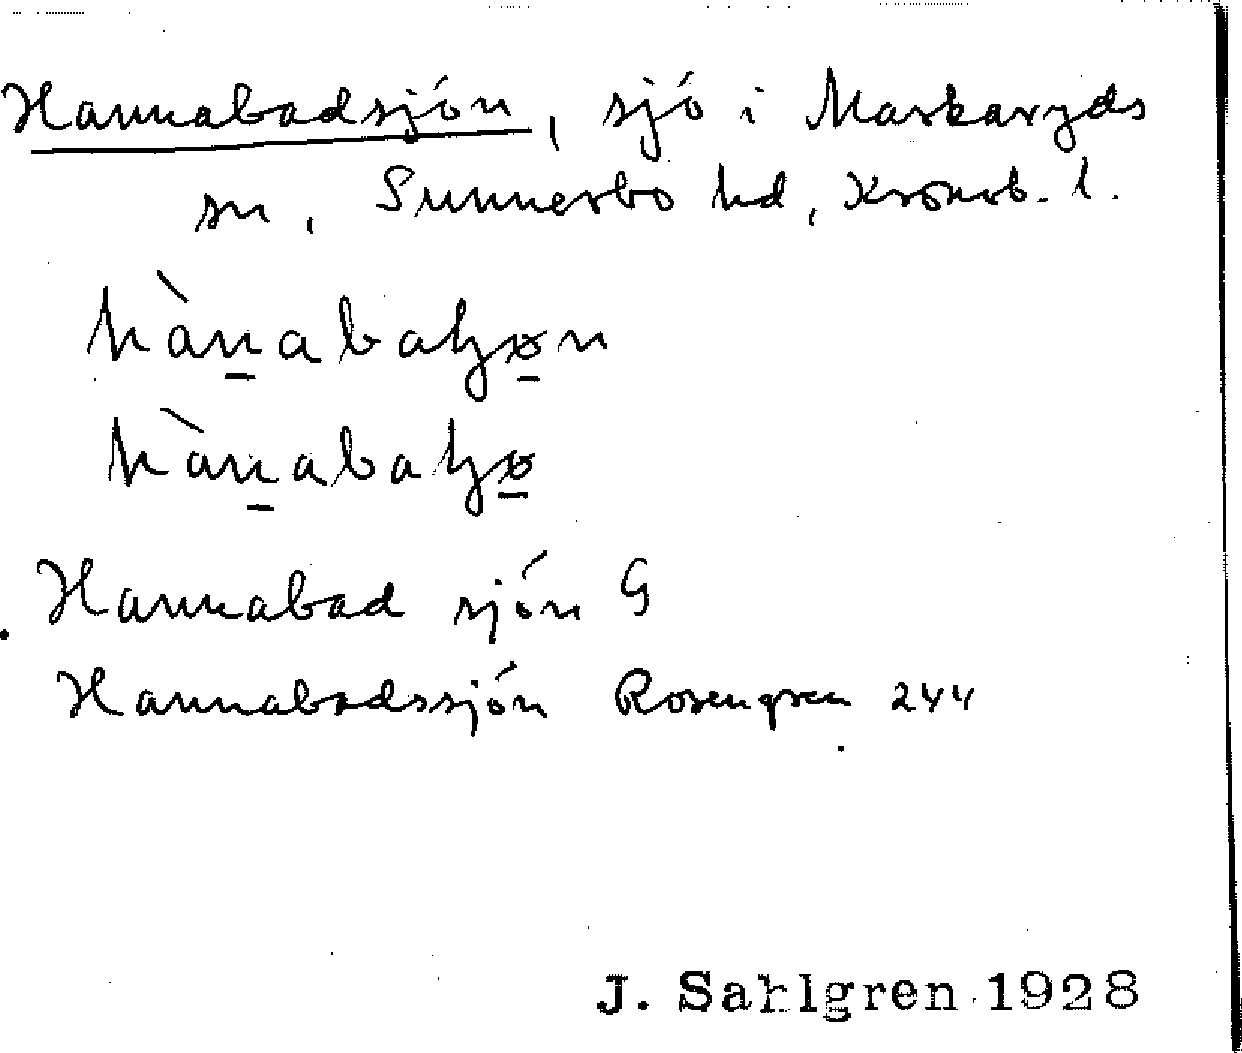 Hannabadsjön, sjö i Markaryds
sn, Sunnerbo hd, Kronob. l.
hànabatʒøn
hànabatʒø
Hannabad sjön G
Hannabadssjön Rosengren 244
J. Sahlgren 1928